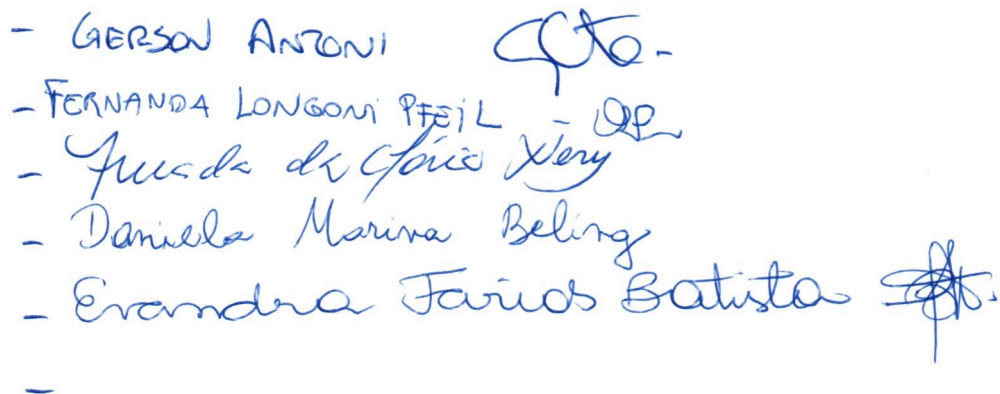 - GERSON ANTONI
- FERNANDA LONGONI PFEIL -
- da Glória Nery
- Daniela Marina Beling
- Evandra Farias Batista
-